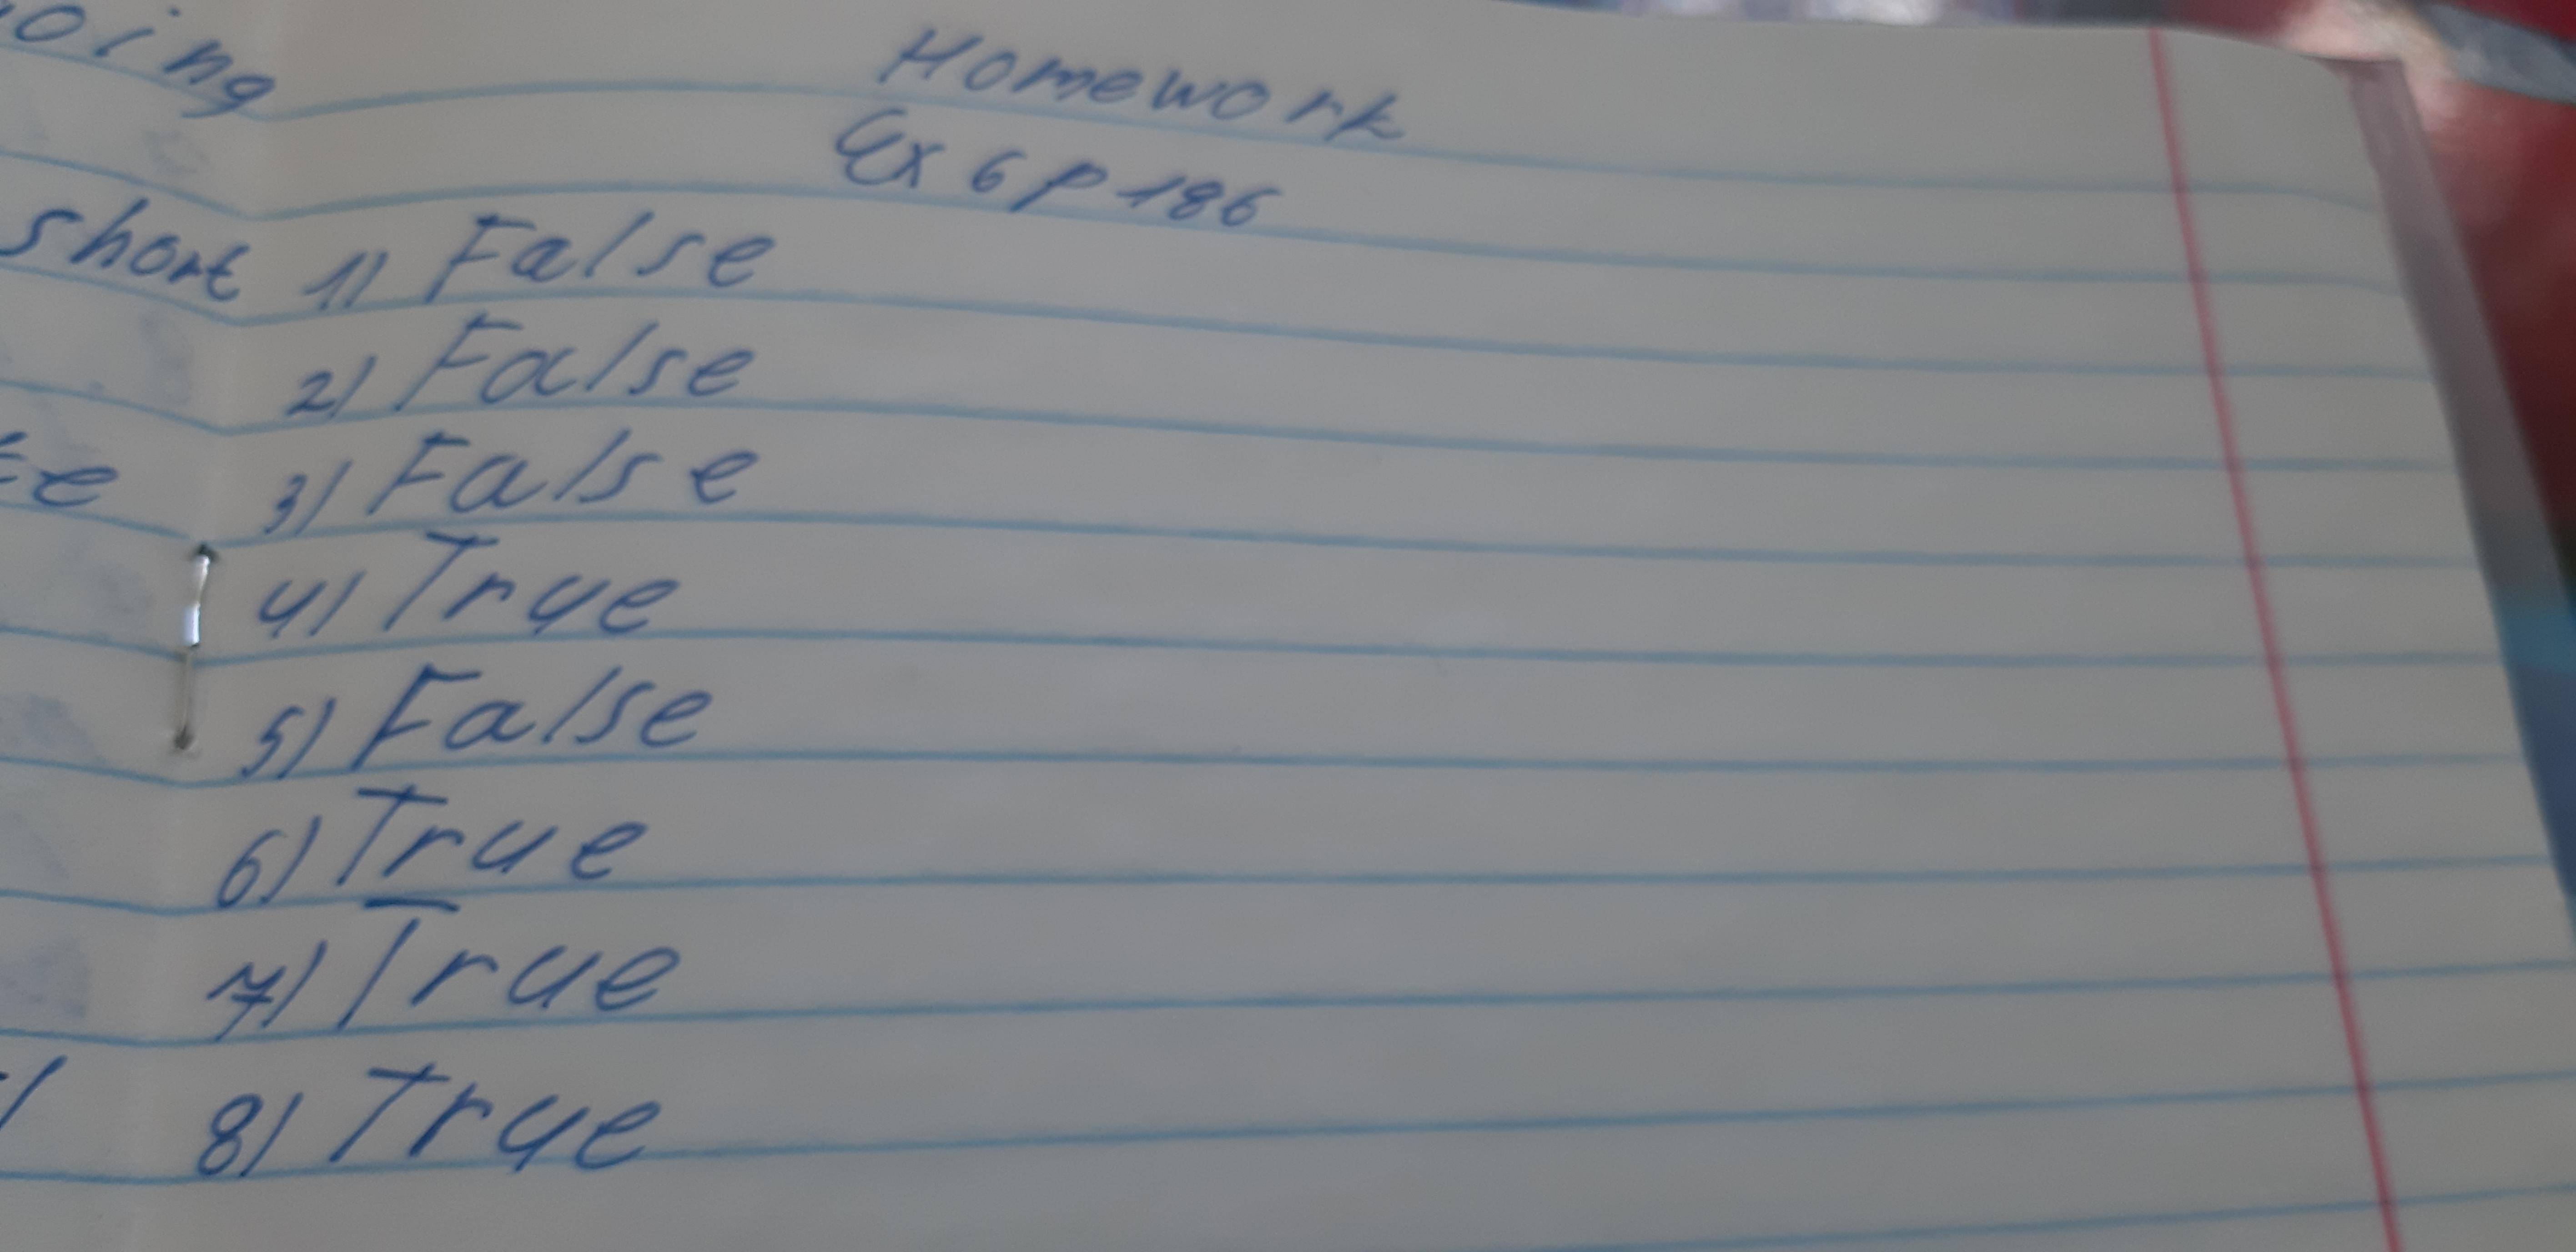 oing
short
te
Homework
Ex 6 p 186
1) False
2) False
3) False
4) True
5) False
6) True
7) True
8) True